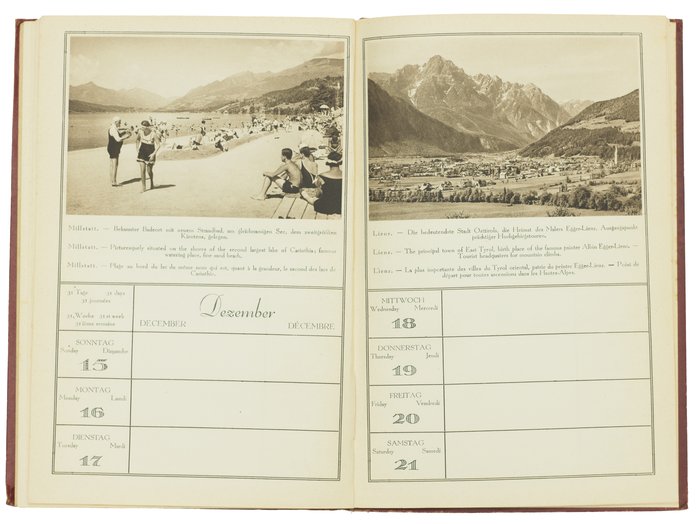 Millstatt. — Bekannter Badeort mit neuem Strandbad, am gleichnamigen See, dem zweitgrößten
Kärntens, gelegen.
Millstatt. — Picturesquely situated on the shores of the second largest lake of Carinthia; famous
watering place, fine sand beach.
Millstatt. — Plage au bord du lac du même nom qui est, quant à la grandeur, le second des lacs de
Carinthie.
31 Tage 31 days
31 journées
51. Woche 51 st week
51 ième semaine
Dezember
DECEMBER DÉCEMBRE
SONNTAG
Sunday Dimanche
15
MONTAG
Monday Lundi
16
DIENSTAG
Tuesday Mardi
17
Lienz. — Die bedeutendste Stadt Osttirols, die Heimat des Malers Egger-Lienz. Ausgangspunkt
prächtiger Hochgebirgstouren.
Lienz. — The principal town of East Tyrol, birth place of the famous painter Albin Egger-Lienz. —
Tourist headquarters for mountain climbs.
Lienz. — La plus importante des villes du Tyrol oriental, patrie du peintre Egger-Lienz. — Point de
départ pour toutes ascensions dans les Hautes-Alpes.
MITTWOCH
Wednesday Mercredi
18
DONNERSTAG
Thursday Jeudi
19
FREITAG
Friday Vendredi
20
SAMSTAG
Saturday Samedi
21